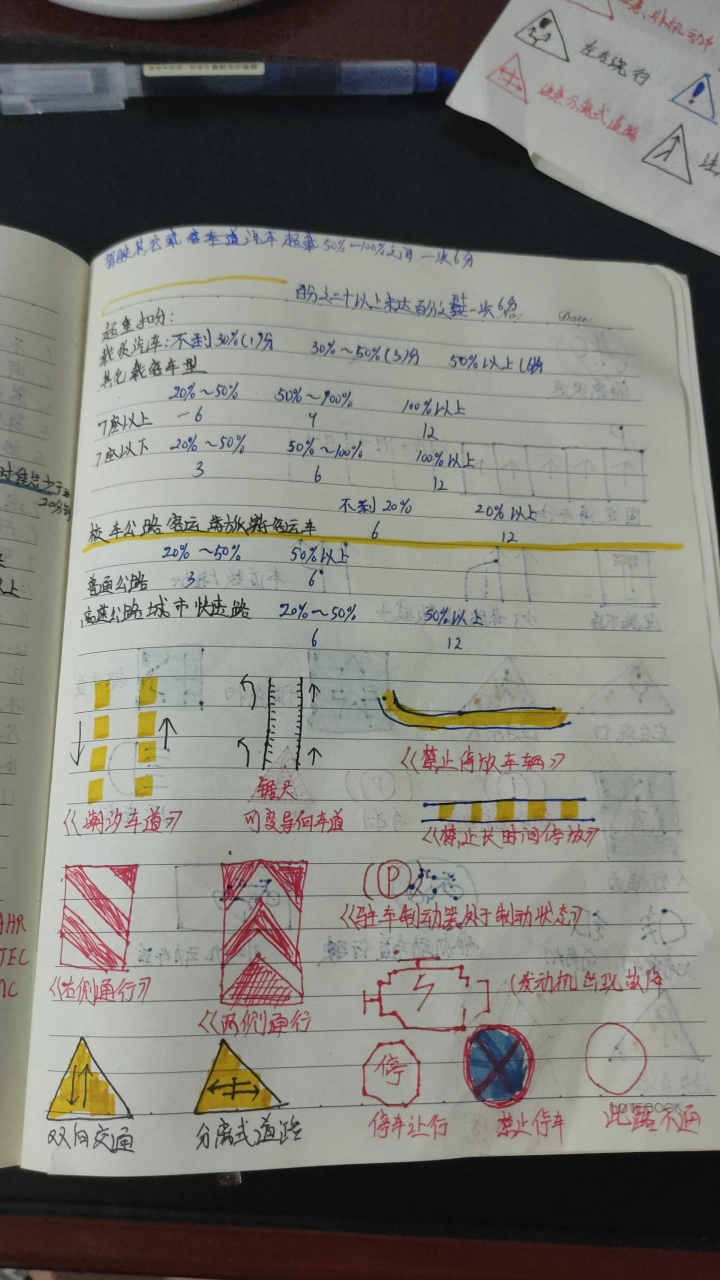 注意非机动车
左右绕行
注意分离式道路
驾驶其它载客车道汽车超载50%~100%之间一次6分
百分之二十以上未达百分之五十一次6分
No:
Date:
超重扣分:
载货汽车:不到30%(1)分 30%~50%(3)分 50%以上(6)分
其它载客车型
20%~50% 50%~100% 100%以上
7座以上 -6 9 12
7座以下 20%~50% 50%~100% 100%以上
3 6 12
不到20% 20%以上
校车公路客运旅游客运车 6 12
20%~50% 50%以上
普通公路 3 6
高速公路城市快速路 20%~50% 50%以上
6 12
《潮汐车道》
锯尺
可变导向车道
《禁止停放车辆》
《禁止长时间停放》
(P)
《驻车制动器处于制动状态》
《右侧通行》
《两侧通行
(发动机出现故障
双向交通
分离式道路
停
停车让行
禁止停车
此路不通
NOTEBOOK
20分钟
以上
AHR
TEC